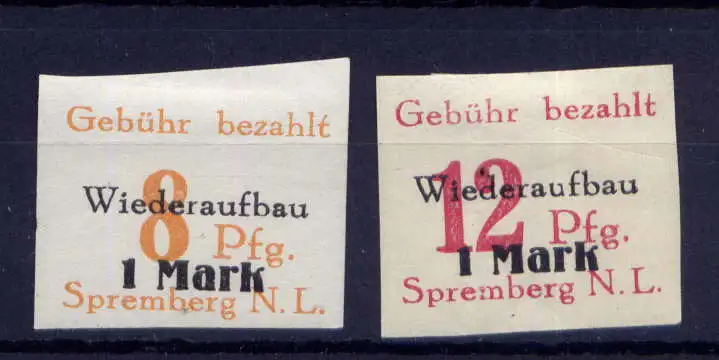 Gebühr bezahlt
Wiederaufbau
8 Pfg.
1 Mark
Spremberg N. L.
Gebühr bezahlt
Wiederaufbau
12 Pfg.
1 Mark
Spremberg N. L.